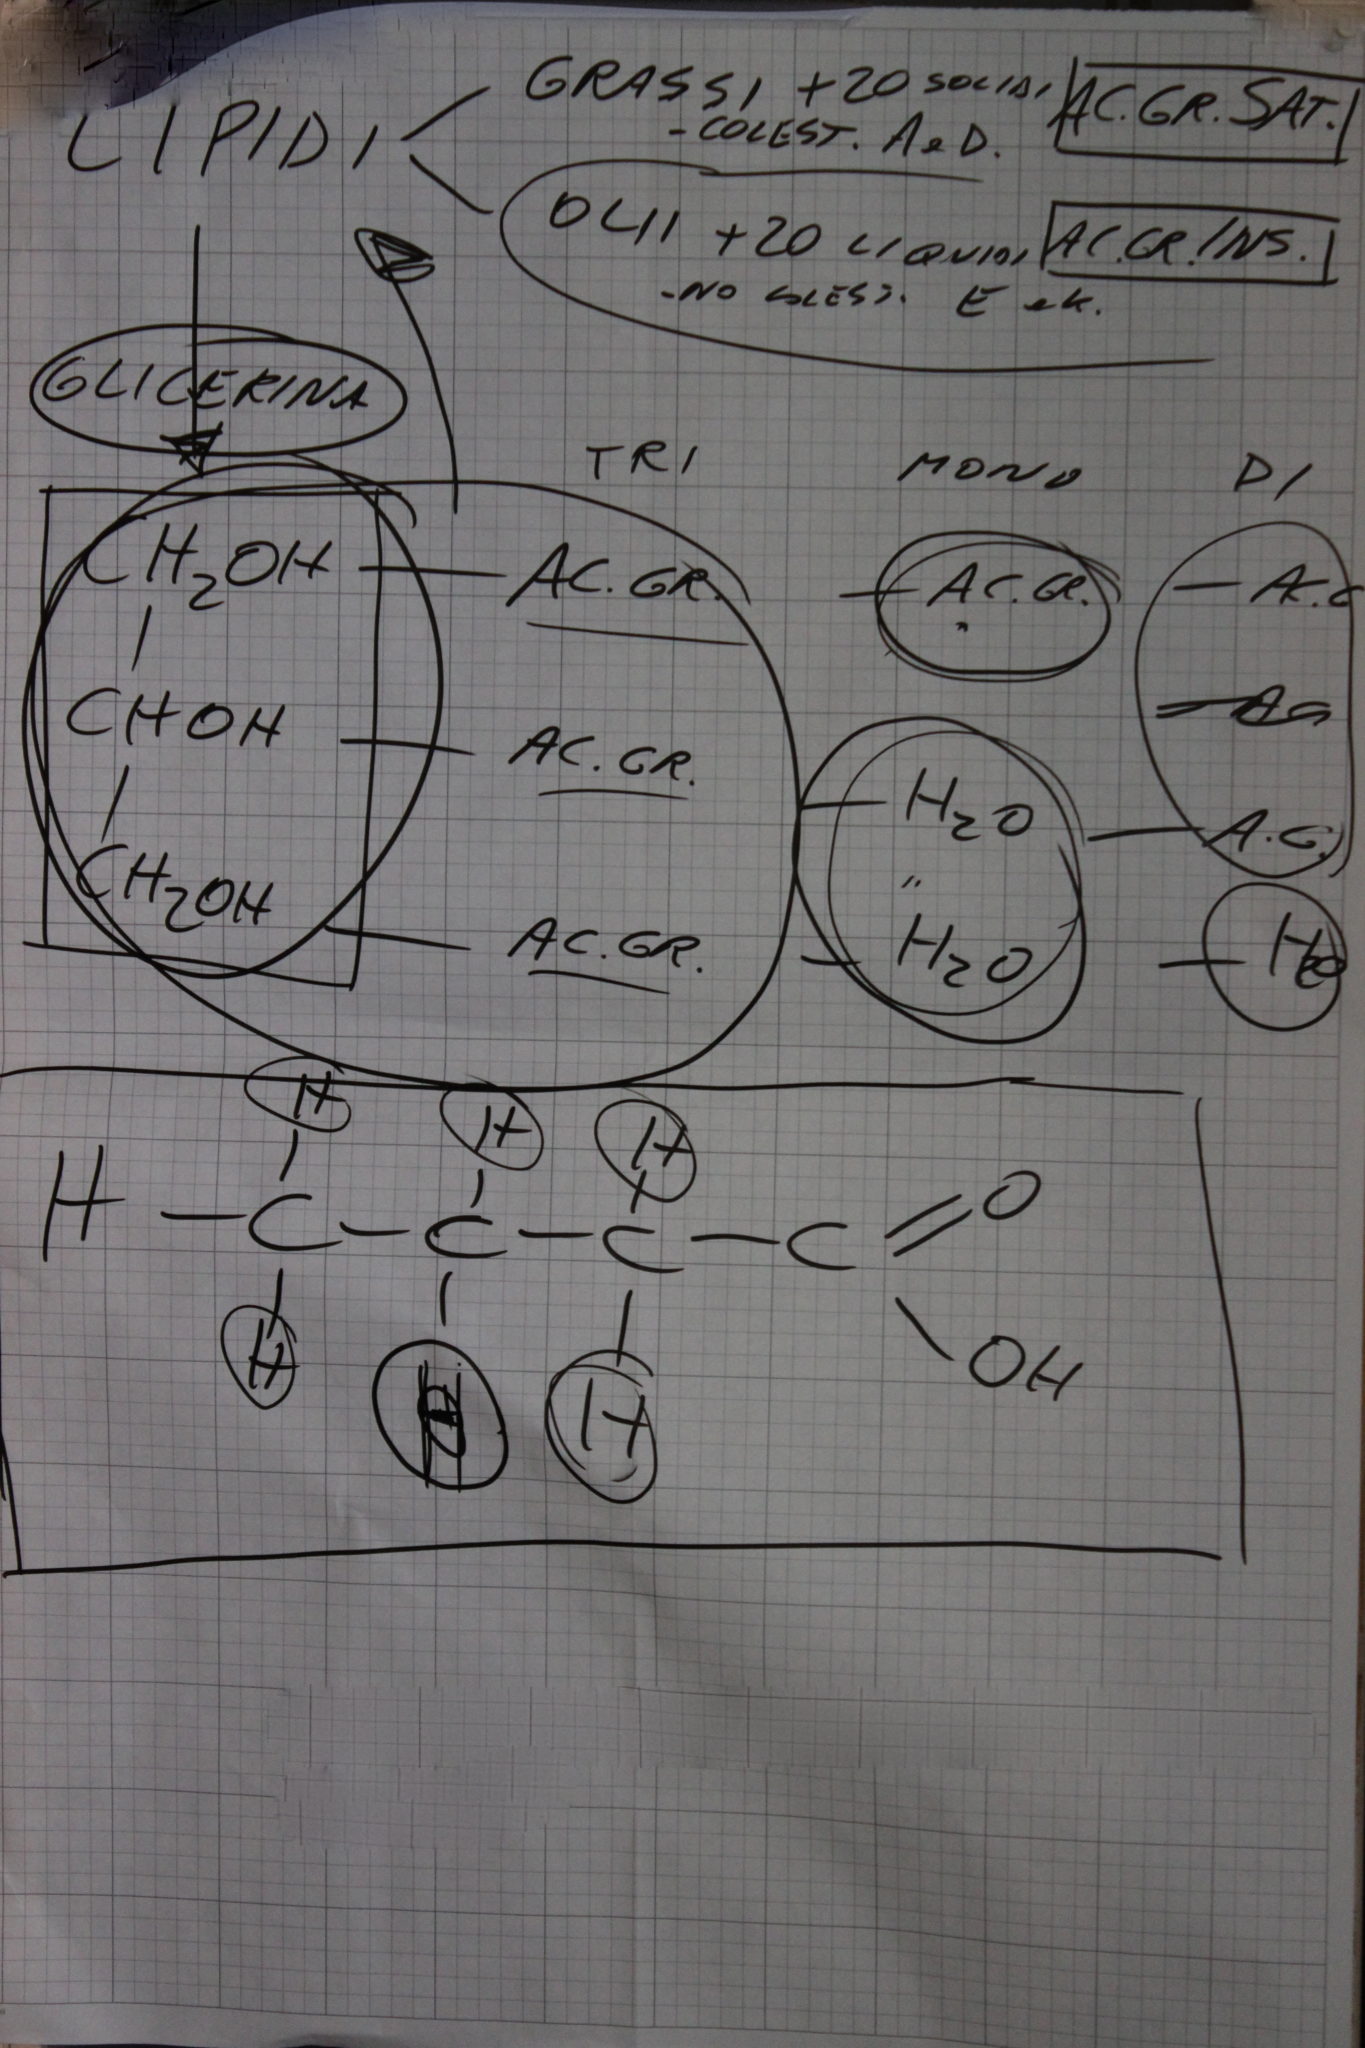 LIPIDI
GRASSI +20 SOLIDI AC.GR.SAT.
-COLEST. A e D.
OLII +20 LIQUIDI AC.GR.INS.
-NO COLEST. E e K.
GLICERINA
TRI MONO DI
CH2OH AC.GR. AC.GR. A.G
CHOH AC.GR. H2O
"
A.G.
CH2OH AC.GR. H2O H2O
H H H
H - C - C - C - C = O
OH
H H H